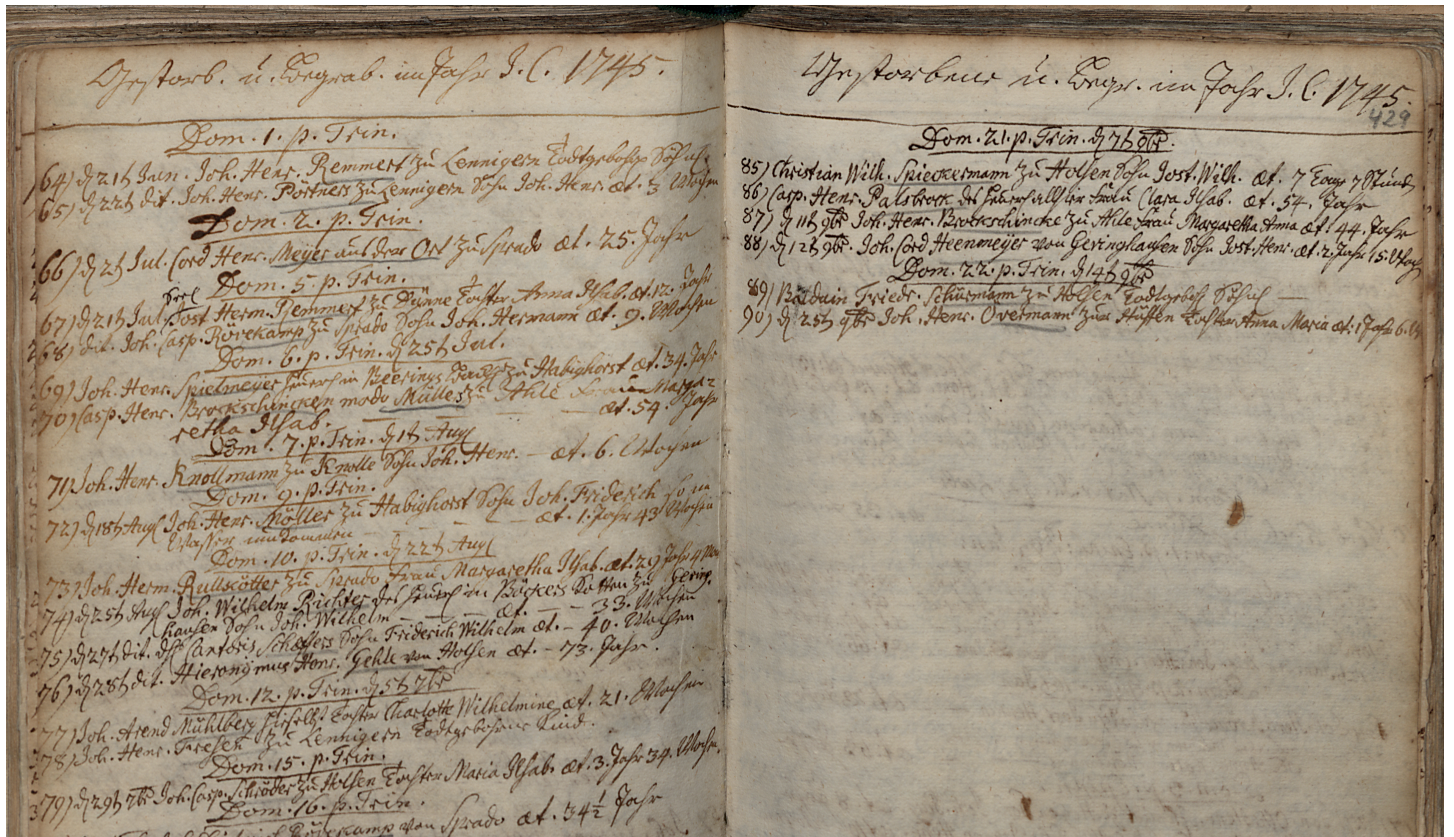 Gestorb. u. Begrab. im Jahr J. C. 1745.
Dom. 1. p. Trin.
64) d 21t Jun. Joh. Henr. Remmert zu Lennigern Todtgebohr Söhnl.
65) d 22t dit. Joh. Henr. Pörtners zu Lennigern Sohn Joh. Henr. æt. 3 Wochen
Dom. 2. p. Trin.
66) d 2t Jul. Cord Henr. Meyer aus dem Ort zu Sprado æt. 25. Jahr
Dom. 5. p. Trin.
67) d 21t Jul. Jost Herm. Remmert zu Dünne Tochter Anna Ilsab. æt. 12. Jahr
68) dit. Joh. Casp. Rörekamp zu Sprado Sohn Joh. Hermann æt. 9. Wochen
Dom. 6. p. Trin. d 25t Jul.
69) Joh. Henr. Spielmeyer Heuerl. in Beerings zu Habighorst æt. 34. Jahr
70) Casp. Henr. Brockschincken modo Müller zu Ahle Frau Marga=
retha Ilsab. — — — æt. 54. Jahr
Dom. 7. p. Trin. d 1t Aug
71) Joh. Henr. Knollmann zu Knolle Sohn Joh. Henr. — æt. 6. Wochen
Dom. 9. p. Trin.
72) d 18t Aug Joh. Henr. Möller zu Habighorst Sohn Joh. Friderich so im
Wasser umkommen — — — æt. 1. Jahr 43 Wochen
Dom. 10. p. Trin. d 22t Aug
73) Joh. Herm. Rullkötter zu Sprado Frau Margaretha Ilsab. æt. 29 Jahr 4
74) d 25t Aug Joh. Wilhelm Richter des Heuerl in Böckers Kotten zu Gering=
hausen Sohn Joh. Wilhelm — — æt. — — 33. Wochen
75) d 27t dit. Cantoris Schæffers Sohn Friderich Wilhelm æt. — 40. Wochen
76) d 28t dit. Hieronymus Henr. Gehle von Holsen æt. — 73. Jahr.
Dom. 12. p. Trin. d 5t 7br
77) Joh. Arend Mühlberg hieselbst Tochter Charlotte Wilhelmine æt. 21. Wochen
78) Joh. Henr. Fresen zu Lennigern Todtgebohrne Kind.
Dom. 15. p. Trin.
79) d 29t 7br Joh. Casp. Schröder zu Holsen Tochter Maria Ilsab. æt. 3. Jahr 34. Wochen
Dom. 16. p. Trin.
Rörekamp von Sprado æt. 34½ Jahr
Gestorbene u. Begr. im Jahr J. C. 1745.
429
Dom. 21. p. Trin. d 7t 9br.
85) Christian Wilh. Spieckermann zu Holsen Sohn Jost Wilh. æt. 7 Tage 7 Stund
86) Casp. Henr. Palsbrock des Heuerl. allhier Frau Clara Ilsab. æt. 54. Jahr
87) d 11t 9br Joh. Henr. Brockschincke zu Ahle Frau Margaretha Anna æt. 44. Jahr
88) d 12t 9br. Joh. Cord Heenmeyer von Geringhausen Sohn Jost. Henr. æt. 2. Jahr 15. Woch
Dom. 22. p. Trin. d 14t 9br
89) Balduin Friedr. Schürmann zu Holsen Todtgeboh Söhnl —
90) d 25t 9br Joh. Henr. Overmann zur Hüffen Tochter Anna Maria æt. 1 Jahr 6.